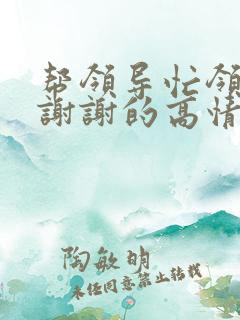 帮领导忙领
謝謝的高情
陶敏明
未经同意禁止转载